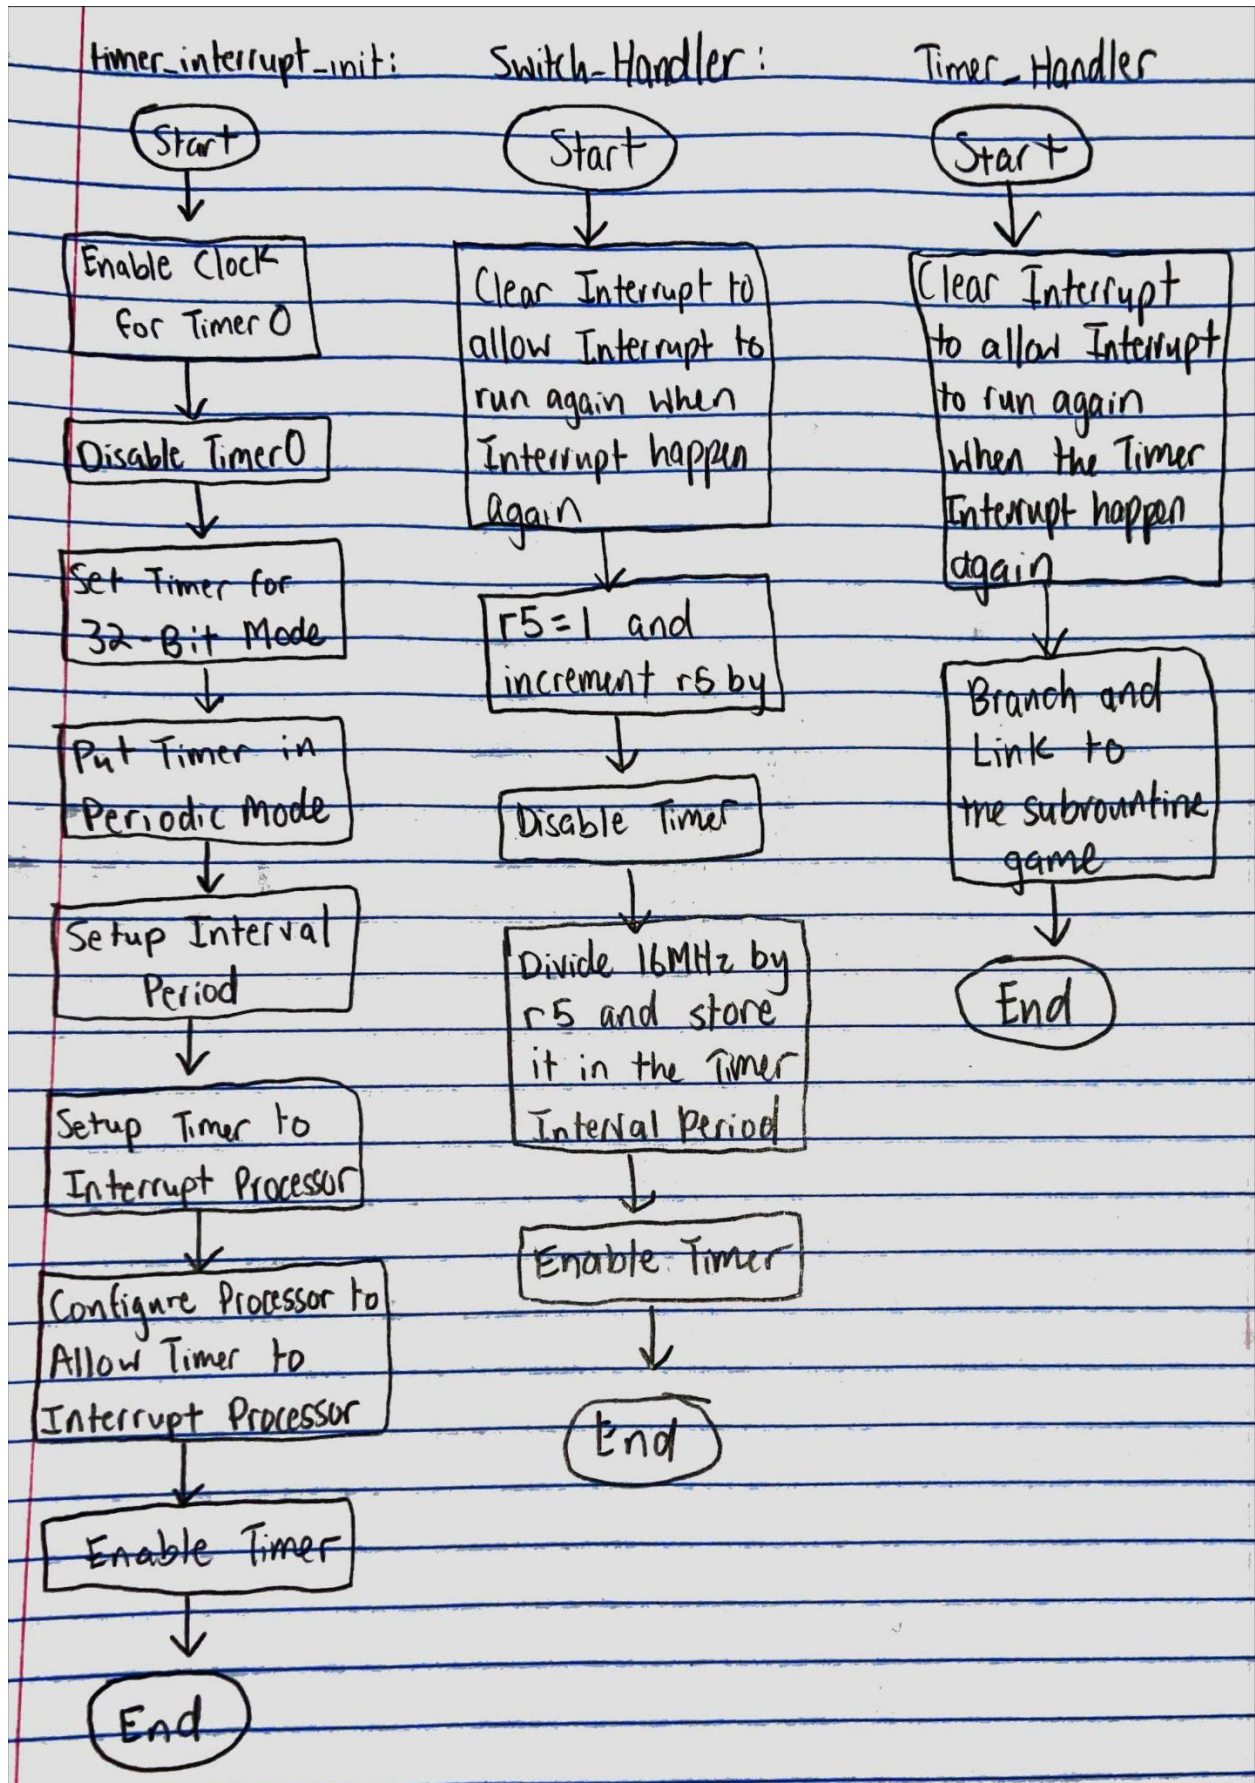 timer_interrupt_init:
Start
Enable Clock
for Timer 0
Disable Timer0
Set Timer for
32-Bit Mode
Put Timer in
Periodic Mode
Setup Interval
Period
Setup Timer to
Interrupt Processor
Configure Processor to
Allow Timer to
Interrupt Processor
Enable Timer
End
Switch_Handler:
Start
Clear Interrupt to
allow Interrupt to
run again when
Interrupt happen
again
r5=1 and
increment r5 by
Disable Timer
Divide 16MHz by
r5 and store
it in the Timer
Interval Period
Enable Timer
End
Timer_Handler
Start
Clear Interrupt
to allow Interrupt
to run again
when the Timer
Interrupt happen
again
Branch and
Link to
the subrountine
game
End